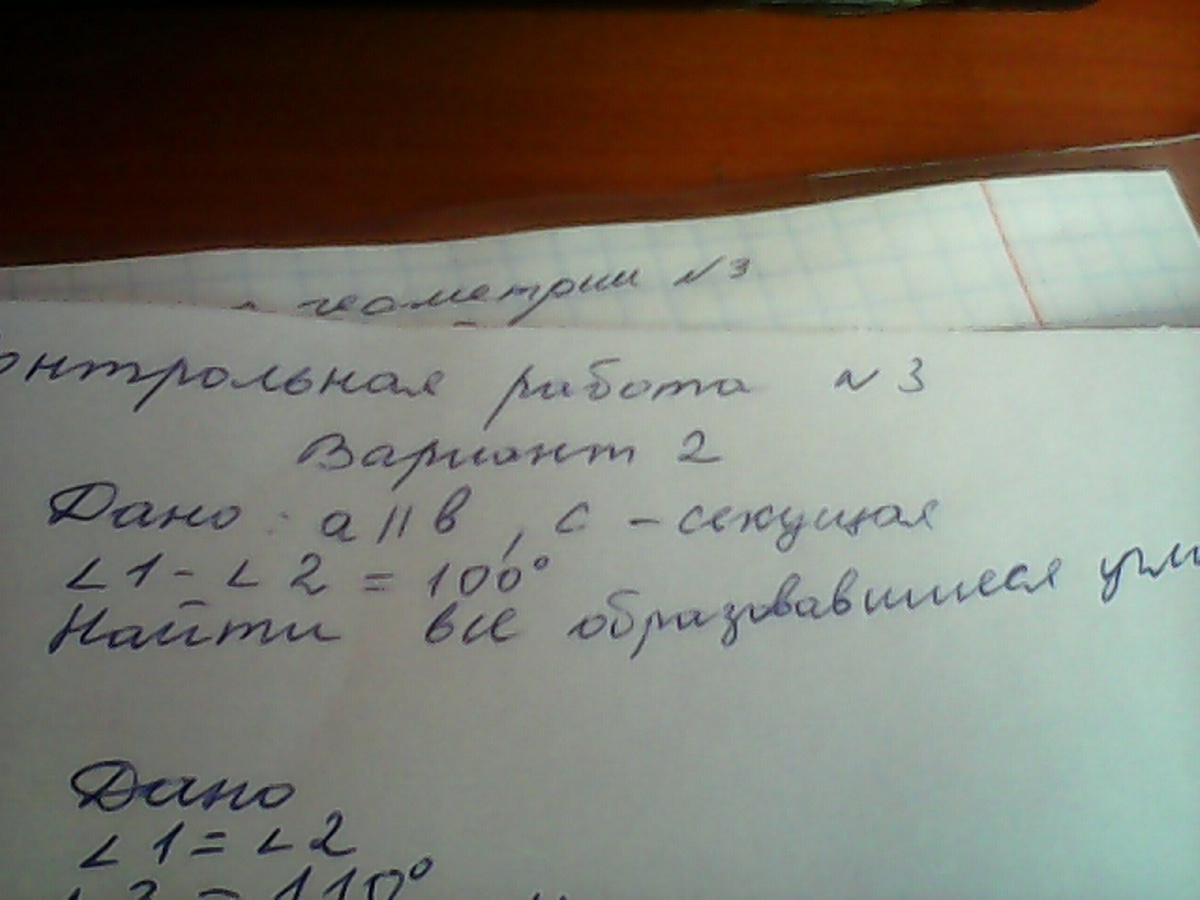 геометрии №3
контрольная работа №3
Вариант 2
Дано: а || в, с - секущая
∠1 - ∠2 = 100°
Найти все образовавшиеся
Дано
∠1 = ∠2
= 110°